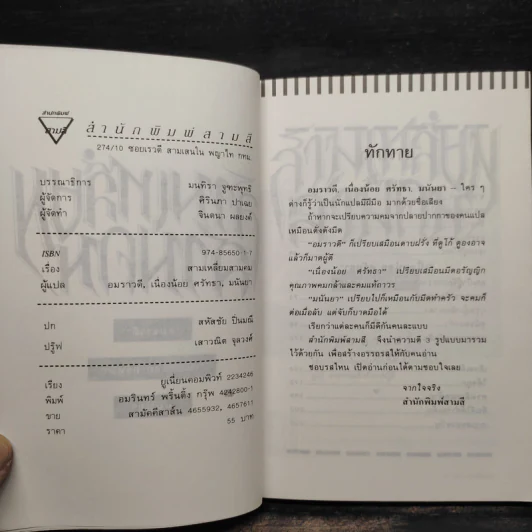 สำนักพิมพ์
สามสี
สำนักพิมพ์สามสี
274/10 ซอยเรวดี สามเสนใน พญาไท กทม.
บรรณาธิการ มนทิรา จูฑะพุทธิ
ผู้จัดการ ศิรินภา ปาเฉย
ผู้จัดทำ จินตนา ผลยงค์
ISBN 974-85650-1-7
เรื่อง สามเหลี่ยมสามคม
ผู้แปล อมราวดี, เนื่องน้อย ศรัทธา, มนันยา
ปก สหัสชัย ปิ่นมณี
ปรู๊ฟ เสาวณิต จุลวงศ์
เรียง ยูเนี่ยนคอมพิวท์ 2234248
พิมพ์ อมรินทร์ พริ้นติ้ง กรุ๊พ 4242800-1
ขาย สามัคคีสาส์น 4655932, 4657611
ราคา 55 บาท
ทักทาย
อมราวดี, เนื่องน้อย ศรัทธา, มนันยา – ใคร ๆ
ต่างก็รู้ว่าเป็นนักแปลมีฝีมือ มากด้วยชื่อเสียง
ถ้าหากจะเปรียบความคมจากปลายปากกาของคนแปล
เหมือนดั่งคมมีด
"อมราวดี" ก็เปรียบเสมือนดาบฝรั่ง ที่ดูโก้ ดูองอาจ
แล้วก็มาดผู้ดี
"เนื่องน้อย ศรัทธา" เปรียบเสมือนมีดอรัญญิก
คุณภาพคมกล้าและคมแท้ถาวร
"มนันยา" เปรียบไปก็เหมือนกับมีดทำครัว จะคมก็
ต่อเมื่อลับ แต่จับก็บาดมือได้
เรียกว่าแต่ละคนก็มีดีกันคนละแบบ
สำนักพิมพ์สามสี จึงนำความดี 3 รูปแบบมารวม
ไว้ด้วยกัน เพื่อสร้างอรรถรสให้กับคนอ่าน
ชอบรสไหน เปิดอ่านก่อนได้ตามชอบใจเลย
จากใจจริง
สำนักพิมพ์สามสี